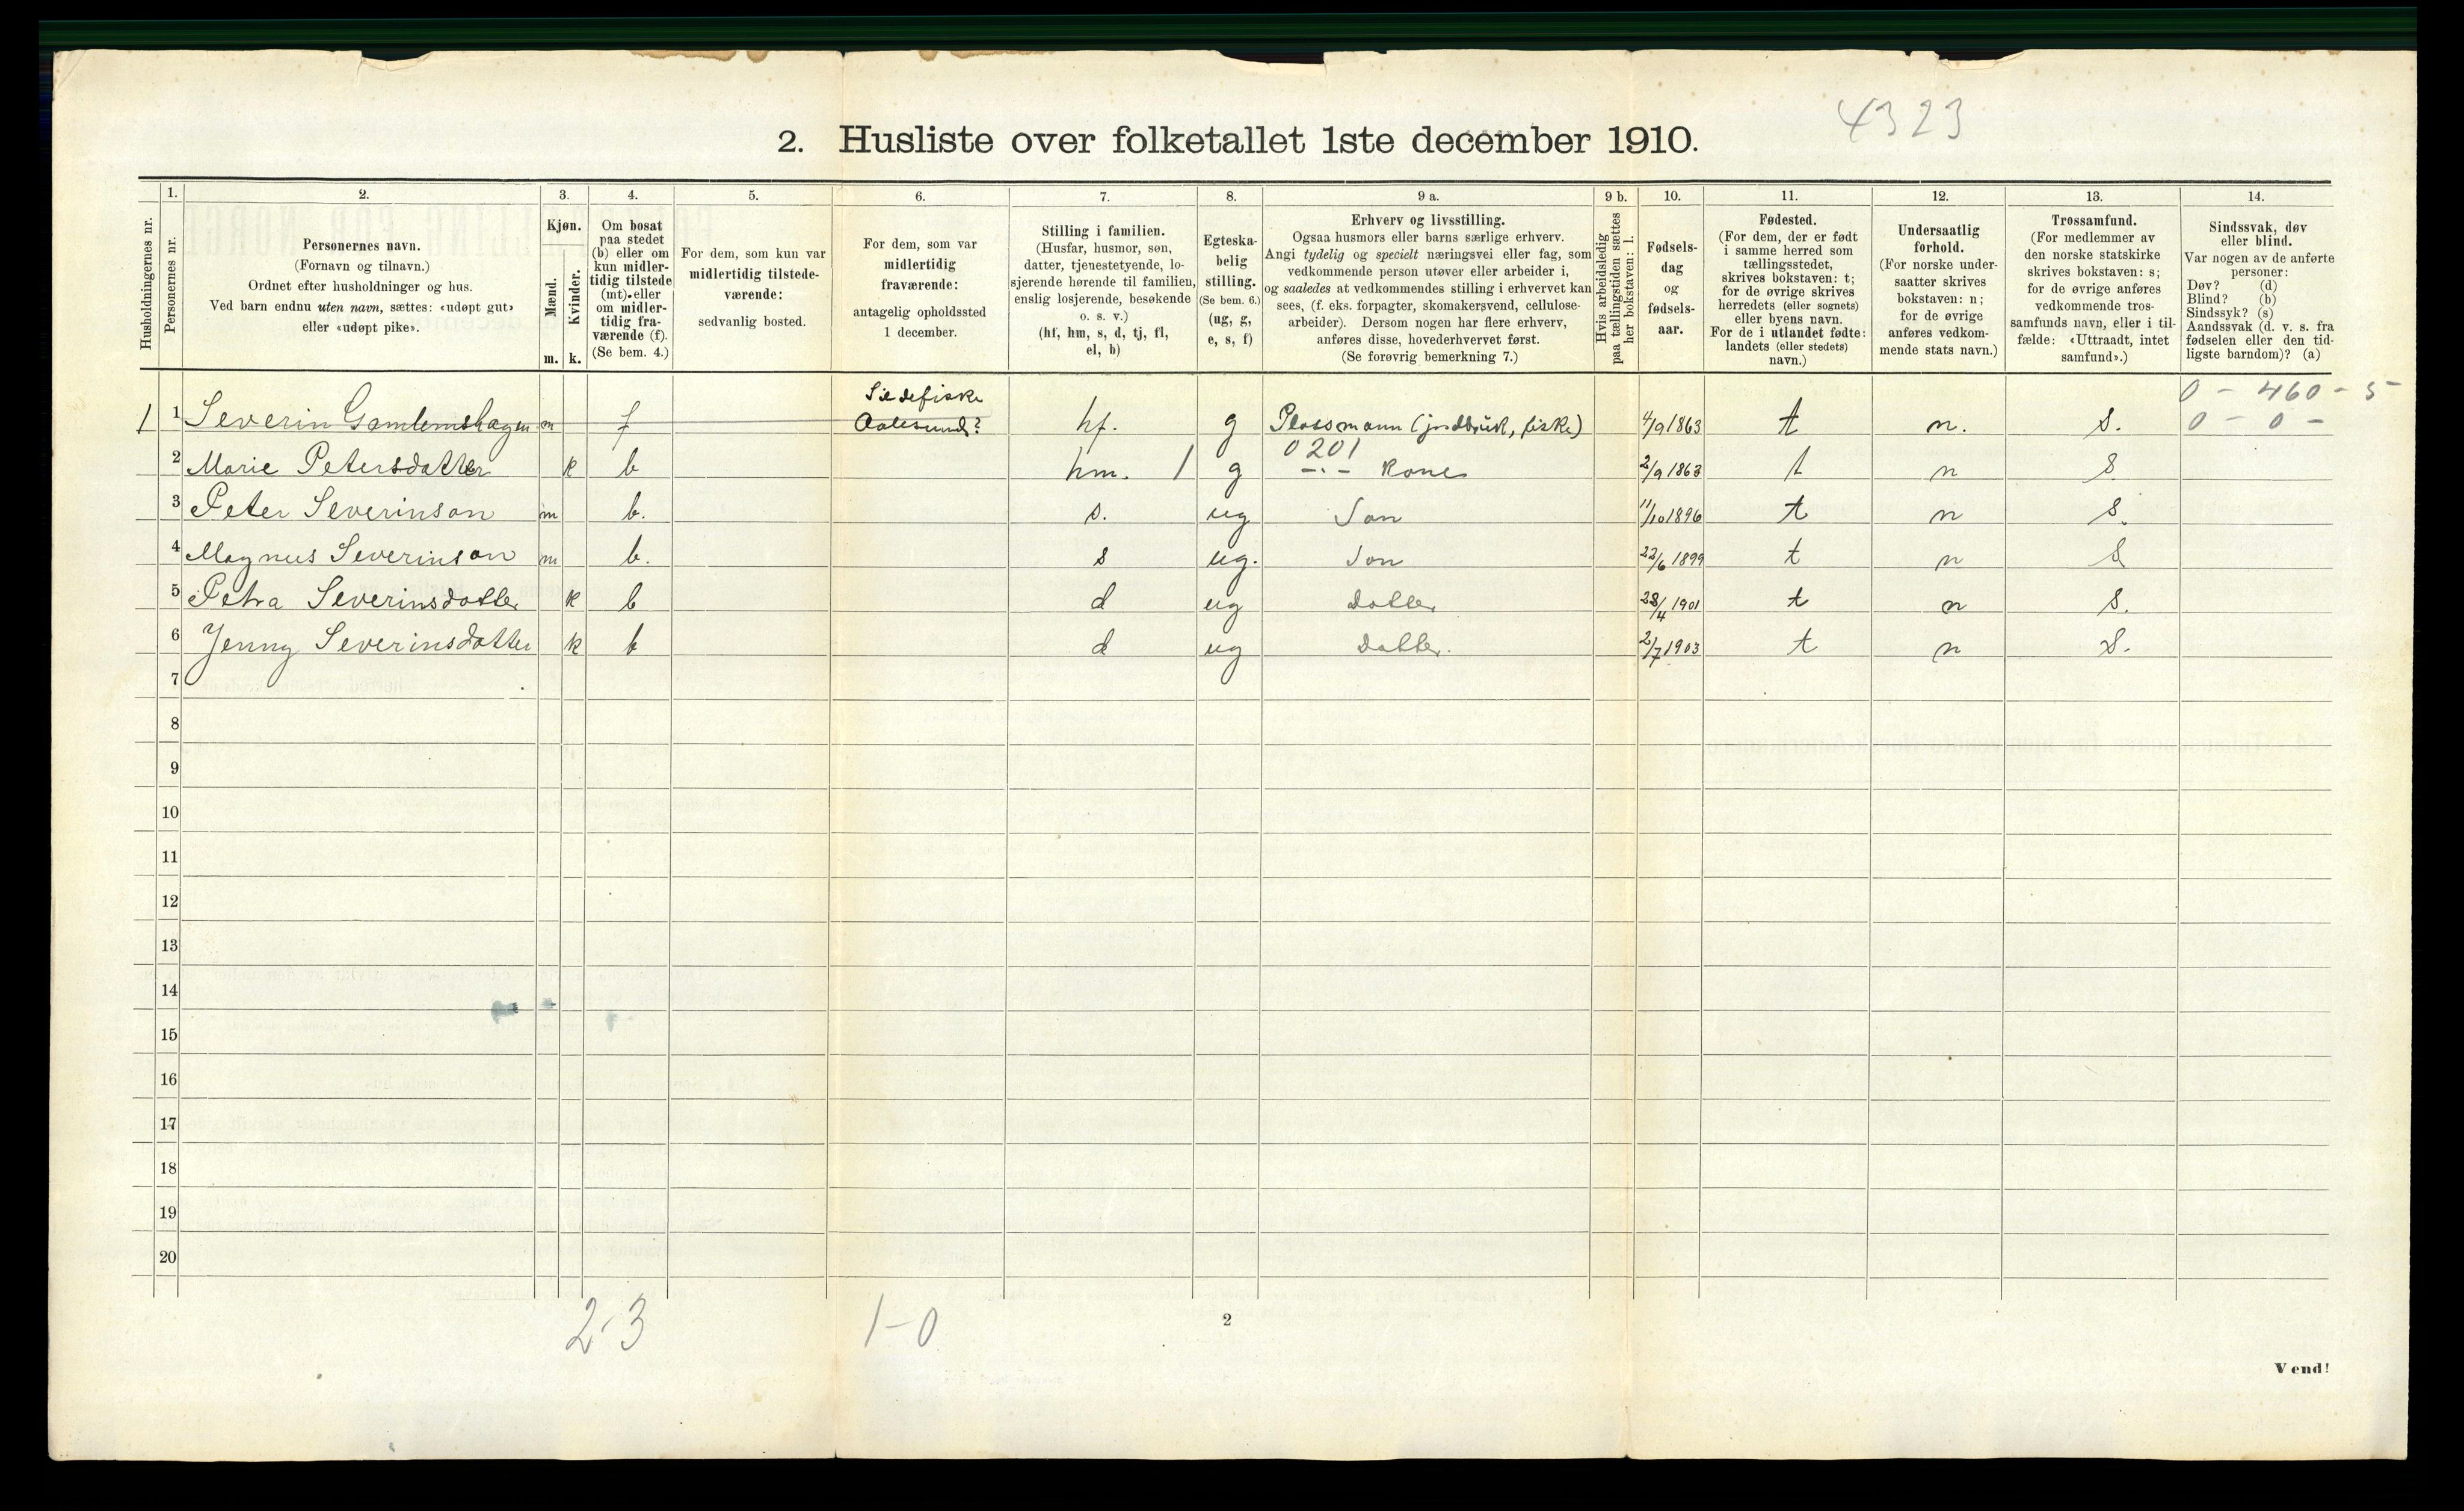 4323
2. Husliste over folketallet 1ste december 1910.
Husholdningernes nr.
1.
Personernes nr.
2.
Personernes navn.
(Fornavn og tilnavn.)
Ordnet efter husholdninger og hus.
Ved barn endnu uten navn, sættes: «udøpt gut»
eller «udøpt pike».
3.
Kjøn.
Mænd.
m.
Kvinder.
k.
4.
Om bosat
paa stedet
(b) eller om
kun midler-
tidig tilstede
(mt) eller
om midler-
tidig fra-
værende (f).
(Se bem. 4.)
5.
For dem, som kun var
midlertidig tilstede-
værende:
sedvanlig bosted.
6.
For dem, som var
midlertidig
fraværende:
antagelig opholdssted
1 december.
7.
Stilling i familien.
(Husfar, husmor, søn,
datter, tjenestetyende, lo-
sjerende hørende til familien,
enslig losjerende, besøkende
o. s. v.)
(hf, hm, s, d, tj, fl,
el, b)
8.
Egteska-
belig
stilling.
(Se bem. 6.)
(ug, g,
e, s, f)
9 a.
Erhverv og livsstilling.
Ogsaa husmors eller barns særlige erhverv.
Angi tydelig og specielt næringsvei eller fag, som
vedkommende person utøver eller arbeider i,
og saaledes at vedkommendes stilling i erhvervet kan
sees, (f. eks. forpagter, skomakersvend, cellulose-
arbeider). Dersom nogen har flere erhverv,
anføres disse, hovederhvervet først.
(Se forøvrig bemerkning 7.)
9 b.
Hvis arbeidsledig
paa tællingstiden sættes
her bokstaven: l.
10.
Fødsels-
dag
og
fødsels-
aar.
11.
Fødested.
(For dem, der er født
i samme herred som
tællingsstedet,
skrives bokstaven: t;
for de øvrige skrives
herredets (eller sognets)
eller byens navn.
For de i utlandet fødte:
landets (eller stedets)
navn.)
12.
Undersaatlig
forhold.
(For norske under-
saatter skrives
bokstaven: n;
for de øvrige
anføres vedkom-
mende stats navn.)
13.
Trossamfund.
(For medlemmer av
den norske statskirke
skrives bokstaven: s;
for de øvrige anføres
vedkommende tros-
samfunds navn, eller i til-
fælde: «Uttraadt, intet
samfund».)
14.
Sindssvak, døv
eller blind.
Var nogen av de anførte
personer:
Døv? (d)
Blind? (b)
Sindssyk? (s)
Aandssvak (d. v. s. fra
fødselen eller den tid-
ligste barndom)? (a)
Sildefiske 0 - 460 - 5
1 1 Severin Gamlemshagen m f Aalesund? hf. g Plassmann (jordbruk, fiske) 4/9 1863 t n. s. 0 - 0 -
0201
2 Marie Petersdatter k b hm. 1 g -"- Kone 2/9 1863 t n s
3 Peter Severinson m b. s. ug Son 11/10 1896 t n s.
4 Magnus Severinson m b. s ug. Son 22/6 1899 t n s
5 Petra Severinsdatter k b d ug datter 28/4 1901 t n s.
6 Jenny Severinsdatter k b d ug datter. 2/7 1903 t n s.
7
8
9
10
11
12
13
14
15
16
17
18
19
20
2-3 1-0
2
Vend!